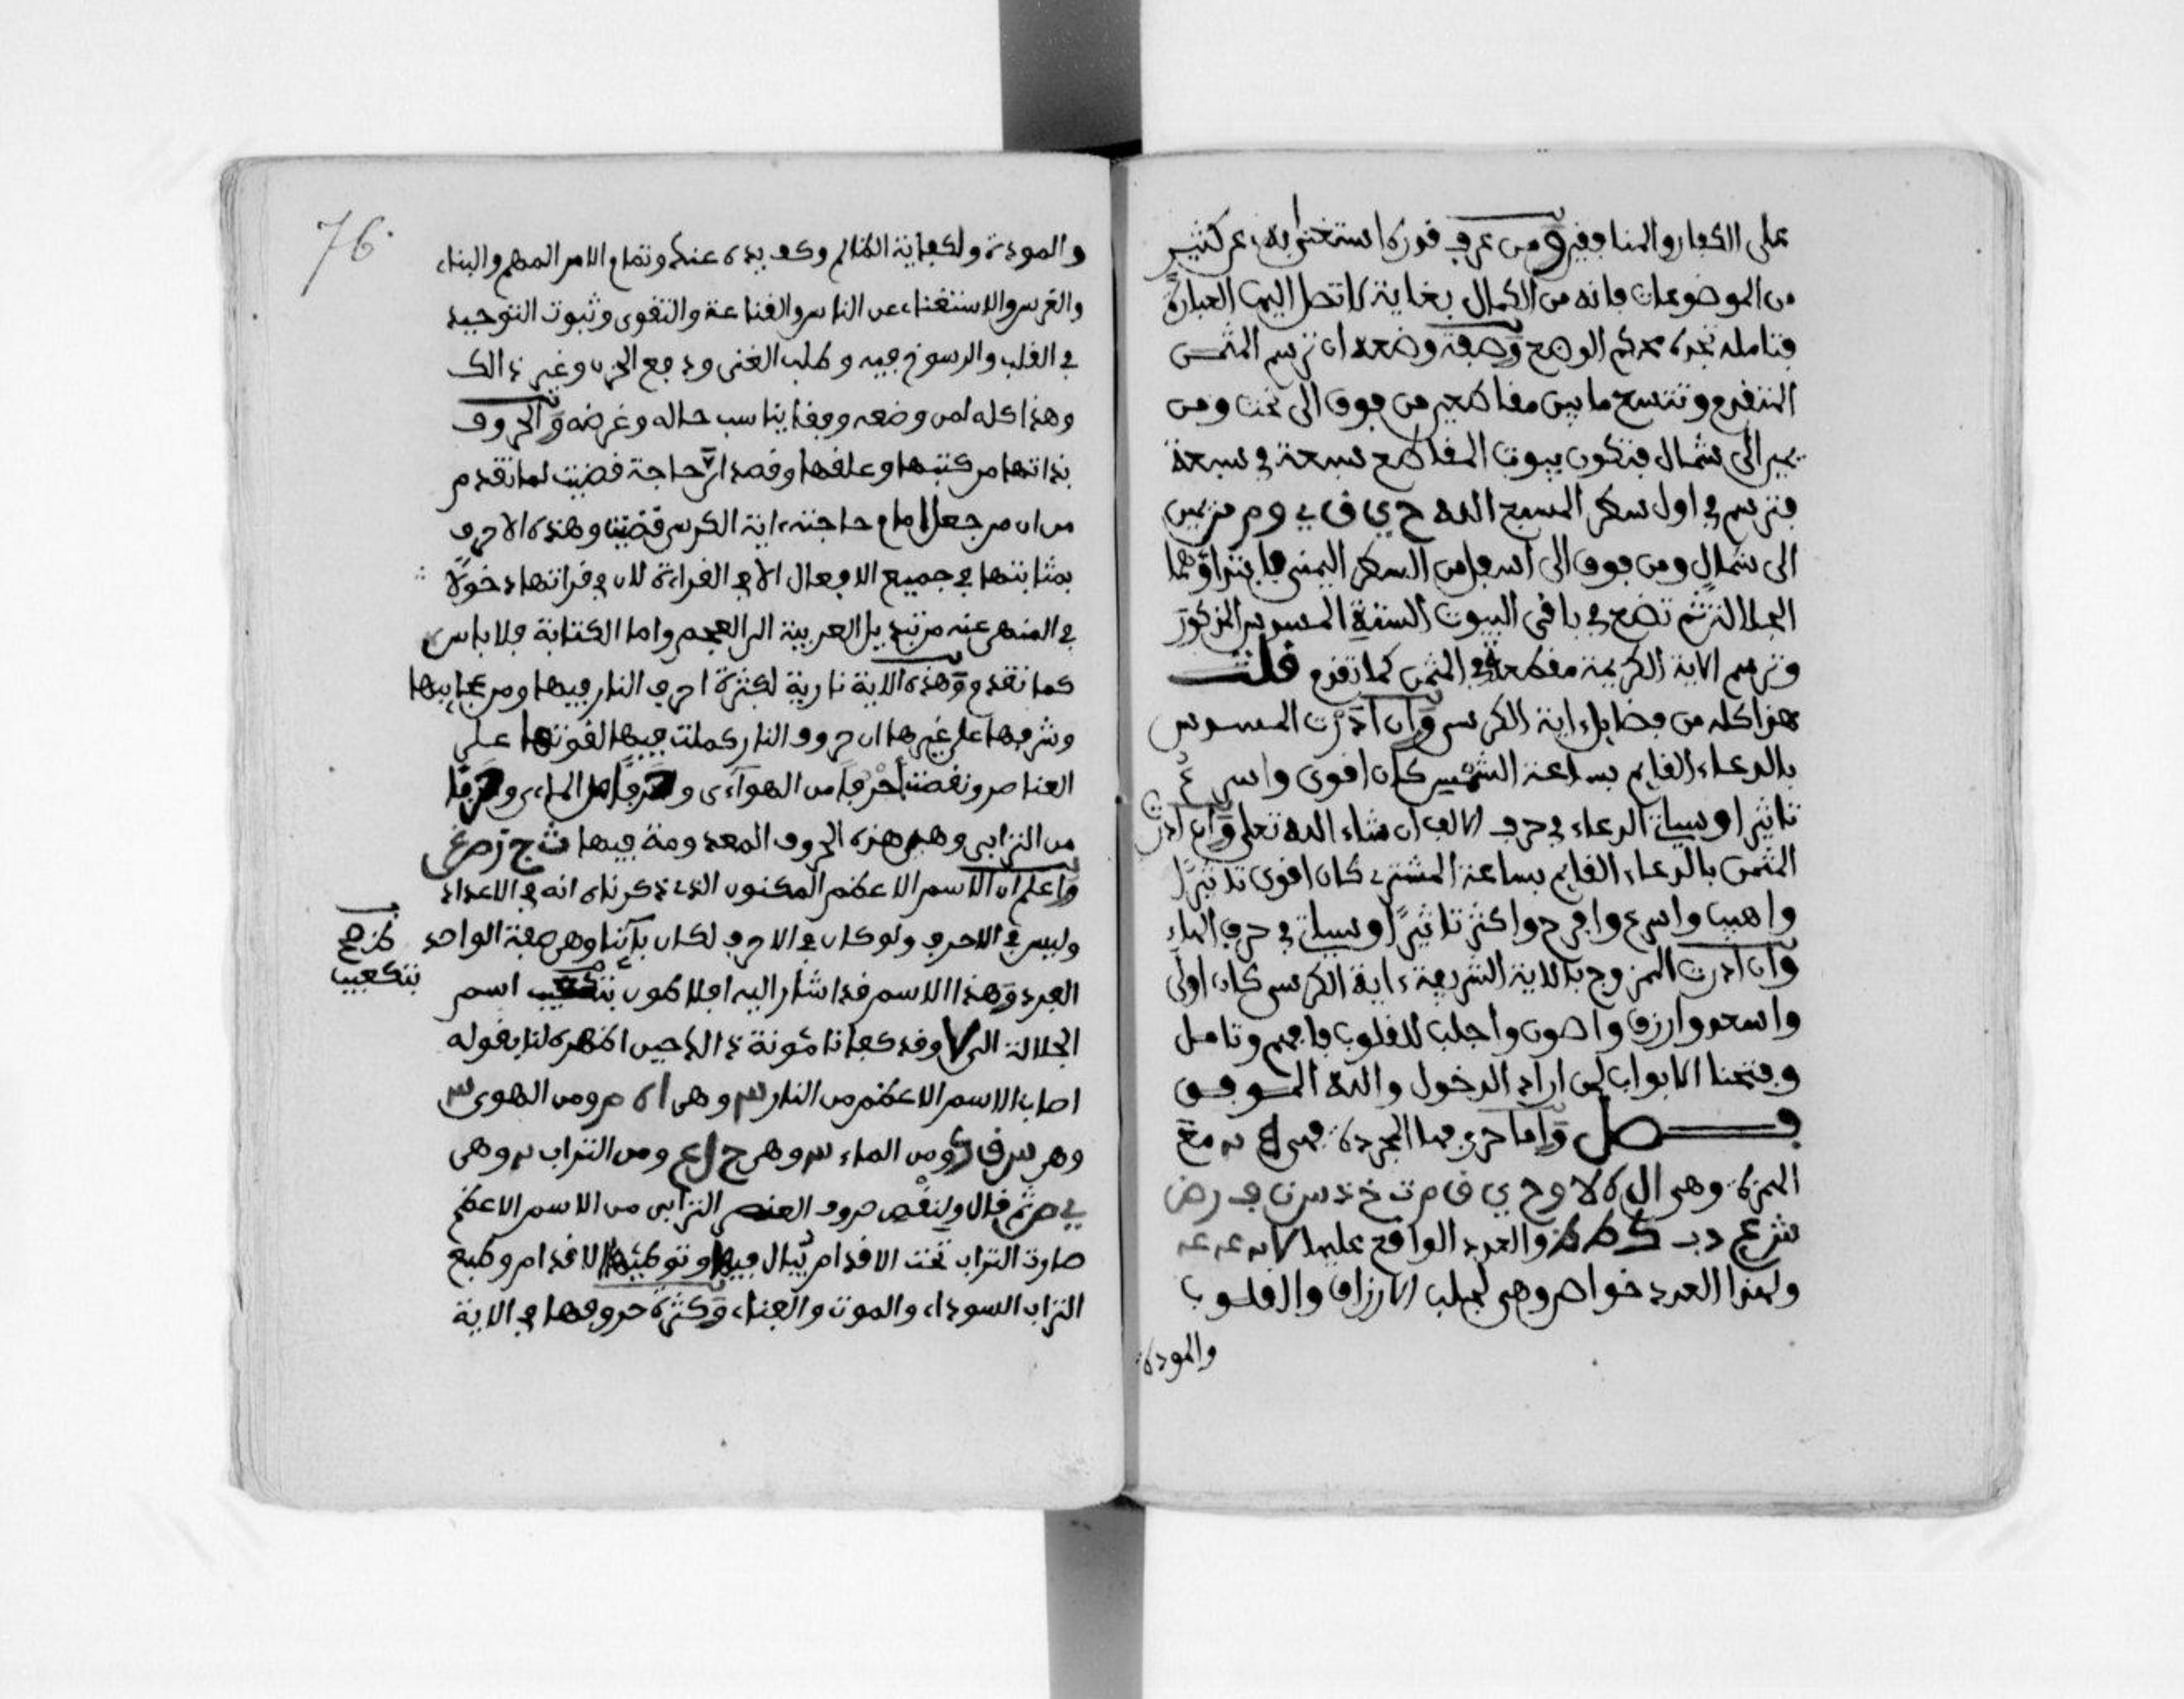 على الكفار والمنافقين ومن عرف قدره استغنى به عن كثير
من الموضوعات فإنه من الكمال بغاية لا تصل اليها العبارة
فتامله تجده محكم الوضع وصفة وضعه ان ترسم المثمن
المتقدم وتتسع ما بين مقاطعه من فوق الى تحت ومن
يمين الى شمال فتكون بيوت المقاطع سبعة في سبعة
فترسم في اول سطر المسبع الله ح ي ق ي و م من يمين
الى شمال ومن فوق الى اسفل من السطر اليمنى
الجلالة ثم تضع في باقي البيوت الستة المذكور
وترسم الاية الكريمة مقطعة في المثمن كما تقدم قلت
هذا كله من فضايل اية الكرسي وان ادرت
بالدعاء القايم بساعة الشمس كان اقوى واسرع
تاثيرا وسياتي الدعاء في حرف الالف ان شاء الله تعلى وان ادرت
المثمن بالدعاء القايم بساعة المشتري كان اقوى تدبيرا
واهيب واسرع وافرح واكثر تاثيرا وسياتي في حرف الهاء
وان ادرت الممزوج بالاية الشريفة ءاية الكرسي كان اولى
واسعد وارزق واصون واجلب للقلوب فافهم وتامل
وفتحنا الابواب لمن اراد الدخول والله الموفق
فصل واما حروفها المجردة فهي مع
الهمزة وهي ال ه لا و ح ي ق م ت خ ذ س ن ف ر ض
ش ع د ب ك ط ظ والعدد الواقع عليها
ولهذا العدد خواص وهي لجلب الارزاق والقلوب
والمودة
76
والمودة ولكفاية الظالم وكف يده عنك وتمام الامر المهم والبناء
والغرس والاستغناء عن الناس والقناعة والتقوى وثبوت التوحيد
في القلب والرسوخ فيه وطلب الغنى ودفع الحزن وغير ذالك
وهذا كله لمن وضعه ووفقا يناسب حاله وغرضه والحروف
بذاتها من كتبها وعلقها وقصد اي حاجة قضيت لما تقدم
من ان من جعل امام حاجته ءاية الكرسي قضيت وهذه الاحرف
بمثابتها في جميع الافعال الا في القراءة لان في قراتها دخولا
في المنهى عنه من تبديل العربية الى العجم واما الكتابة فلا باس
كما تقدم وهذه الاية نارية لكثرة احرف النار فيها ومن عجايبها
وشرفها على غيرها ان حروف النار كملت فيها لقوتها على
العناصر ونقصت احرفا من الهوآءى وحرفا من الماءى وحرفا
من الترابى وهي هذه الحروف المعدومة فيها ث ج ز ص غ
واعلم ان الاسم الاعظم المكنون الذي ذكرناه انه في الاعداد
وليس في الاحرف ولو كان في الاحرف لكان بآئنا وهي صفة الواحد
الفرد وهذا الاسم قد اشار اليه افلاطون بتكعيب اسم
كذ صح
بتكعيب
الجلالة وقد كفانا مئونة ذالك حين اظهره لنا بقوله
اصاب الاسم الاعظم من النار وهي ا ه م ومن الهوى
وهي س ق ك ومن الماء وهي ح ل ع ومن التراب وهي
ي ص ثم قال ولنقص حروف العنصر الترابى من الاسم الاعظم
صارت التراب تحت الاقدام يبال فيها وتوطئها الاقدام وطبع
التراب السوداء والموت والفناء وكثرة حروفها في الاية